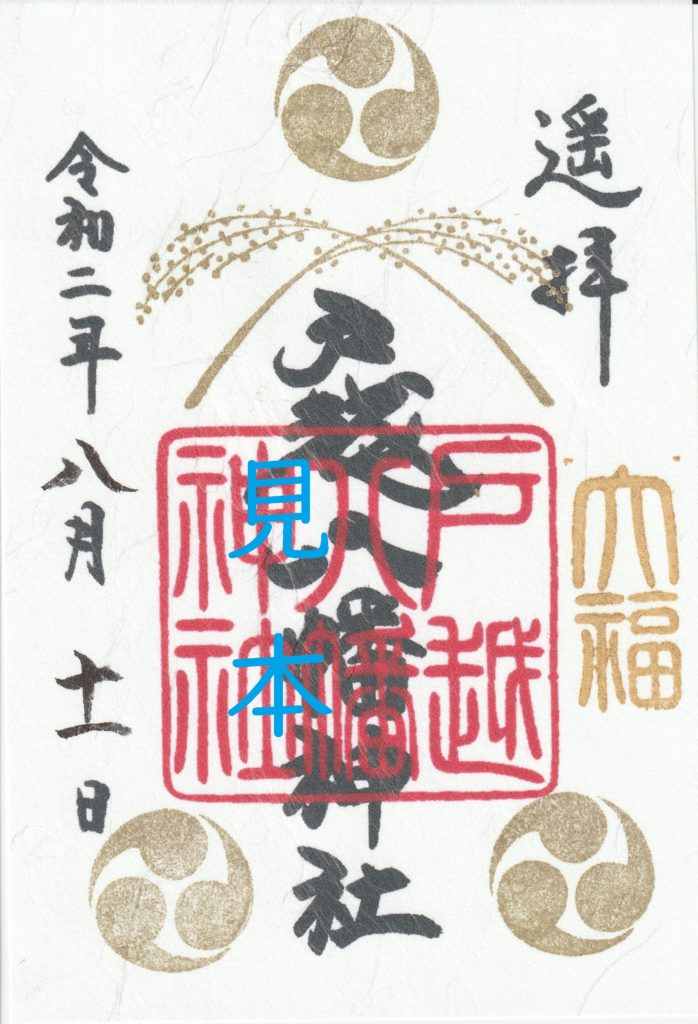 遥拝
大福
戸越八幡神社
戸越
八幡
神社
見本
令和二年八月十一日